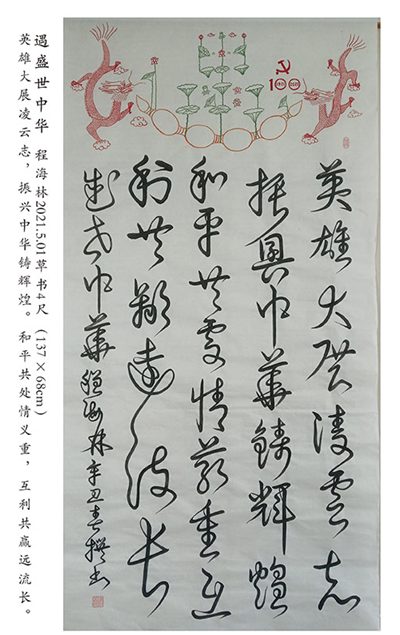 100
英雄大展凌雲志
振興中華鑄輝煌
和平共處情義重互
利共贏遠流長
盛世中華 程海林辛丑春撰書
遇盛世中华 程海林2021.5.01草书4尺 (137×68cm)
英雄大展凌云志，振兴中华铸辉煌。和平共处情义重，互利共赢远流长。